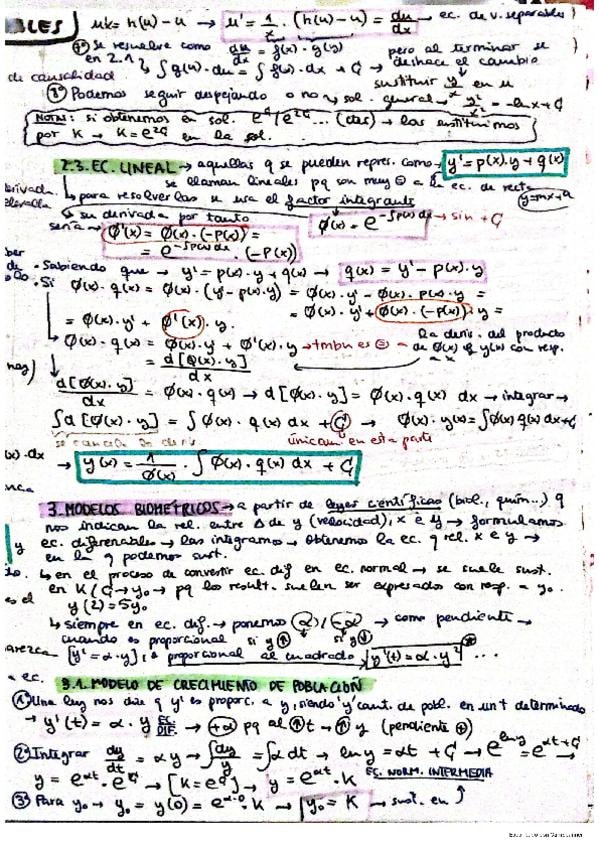 ux = h(u)-u → u' = 1/x · (h(u)-u) = du/dx → ec. de v. separables
BLES
Se resuelve como du/dx = f(x)·g(y) pero al terminar se
en 2.1 ↳ ∫g(u)·du = ∫f(x)·dx + C deshace el cambio
de causalidad sustituir y/x en u
Podemos seguir despejando o no → sol. general →
NOTAS: si obtenemos en sol. → las sustituimos
por K → K = e^2C en la sol.
2.3. EC. LINEAL → aquellas q se pueden repres. como → y' = p(x)·y + q(x)
se llaman lineales pq son muy = a la ec. de recta
↳ para resolverlas se usa el factor integrante y=mx+n
↳ su derivada por tanto Ø(x) = e^-∫p(x)dx → sin + C
sería → Ø'(x) = Ø(x)·(-P(x)) =
= e^-∫p(x)dx · (-P(x))
· Sabiendo que → y' = p(x)·y + q(x) → q(x) = y' - p(x)·y
· Si Ø(x)·q(x) = Ø(x)·(y'-p(x)·y) = Ø(x)·y' - Ø(x)·P(x)·y =
= Ø(x)·y' + Ø(x)·(-p(x))·y =
= Ø(x)·y' + Ø'(x)·y.
→ Ø(x)·q(x) = Ø(x)·y' + Ø'(x)·y → tmbn es = → la deriv. del producto
= d[Ø(x)·y]/dx de Ø(x) y y(x) con resp. a x
d[Ø(x)·y]/dx = Ø(x)·q(x) → d[Ø(x)·y] = Ø(x)·q(x) dx → integrar →
∫d[Ø(x)·y] = ∫Ø(x)·q(x) dx + C → Ø(x)·y(x) = ∫Ø(x)q(x)dx + C
se cancela únicam. en esta parte
(x)·dx → y(x) = 1/Ø(x) · ∫Ø(x)·q(x) dx + C
3. MODELOS BIOMÉTRICOS → a partir de leyes científicas (biol., quím...) q
nos indican la rel. entre Δ de y (velocidad), x e y → formulamos
ec. diferenciables → las integramos → obtenemos la ec. q rel. x e y →
en la q podemos sust.
↳ en el proceso de convertir ec. dif en ec. normal → se suele sust.
en K/C → y₀ → pq los result. suelen ser expresados con resp. a y₀.
y(2) = 5y₀
↳ siempre en ec. dif. → ponemos α / -α → como pendiente →
cuando es proporcional si y↑ si y↓
[y' = α·y], a proporcional al cuadrado, y'(t) = α·y² ...
3.1. MODELO DE CRECIMIENTO DE POBLACIÓN
1º Una ley nos dice q y' es proporc. a y, siendo y cant. de pobl. en un t determinado
→ y'(t) = α·y EC. DIF. → +α pq al ↑t → ↑y (pendiente +)
2º Integrar dy/dt = αy → ∫dy/y = ∫α dt → ln y = αt + C → e^ln y = e^αt+C →
y = e^αt · e^C → [K = e^C] → y = e^αt · K
EC. NORM. INTERMEDIA
3º Para y₀ → y₀ = y(0) = e^α·0 · K → y₀ = K → sust. en